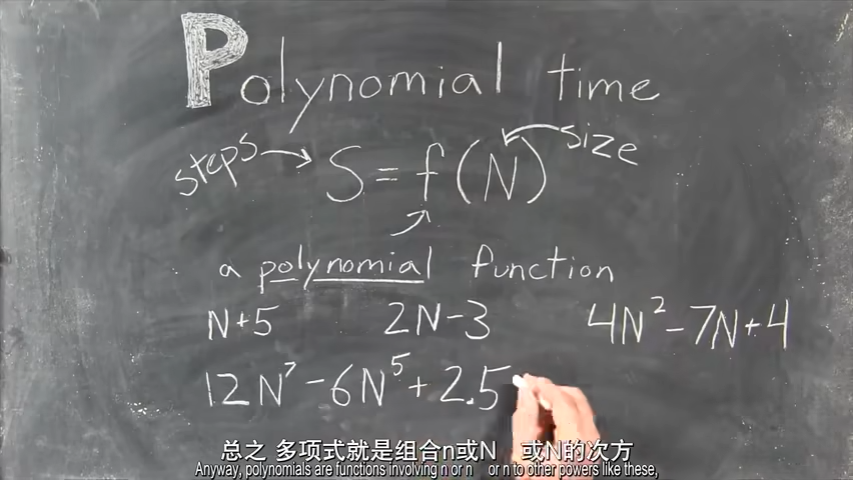 Polynomial time
steps S = f(N) size
a polynomial function
N+5 2N-3 4N²-7N+4
12N⁷-6N⁵+2.5
总之 多项式就是组合n或N 或N的次方
Anyway, polynomials are functions involving n or n or n to other powers like these,